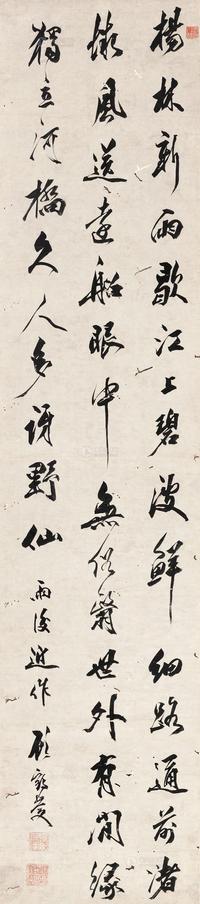 楊林新雨歇江上碧波鮮細路通前渚
微風送遠船眼中無俗世外有閒緣
獨立河橋久人多訝野仙雨後近作顧